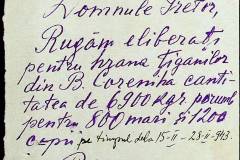 Domnule Pretor,
Rugăm eliberați
pentru hrana țiganilor
din B. Coreniha canti-
tatea de 6900 kgr. porumb
pentru 800 mari și 1200
copii pe timpul dela 15-II - 23-II-943.